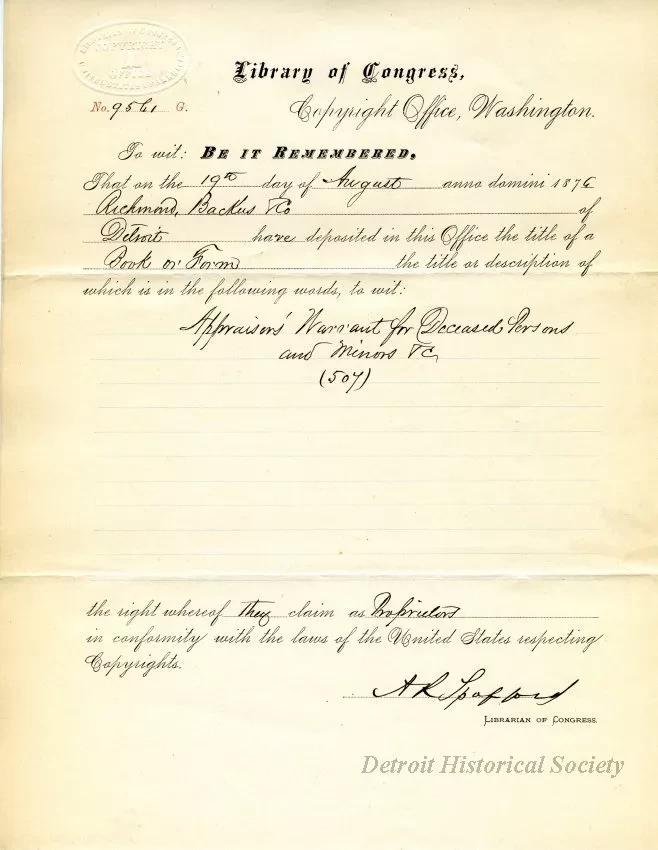 COPYRIGHT
OFFICE
Library of Congress,
No. 9561 G. Copyright Office, Washington.
To wit: BE IT REMEMBERED,
That on the 19th day of August anno domini 1876
Richmond, Backus & Co of
Detroit have deposited in this Office the title of a
Book or Form the title or description of
which is in the following words, to wit:
Appraisers' Warrant for Deceased Persons
and Minors &c,
(507)
the right whereof they claim as Proprietors
in conformity with the laws of the United States respecting
Copyrights.
A R Spofford
LIBRARIAN OF CONGRESS.
Detroit Historical Society